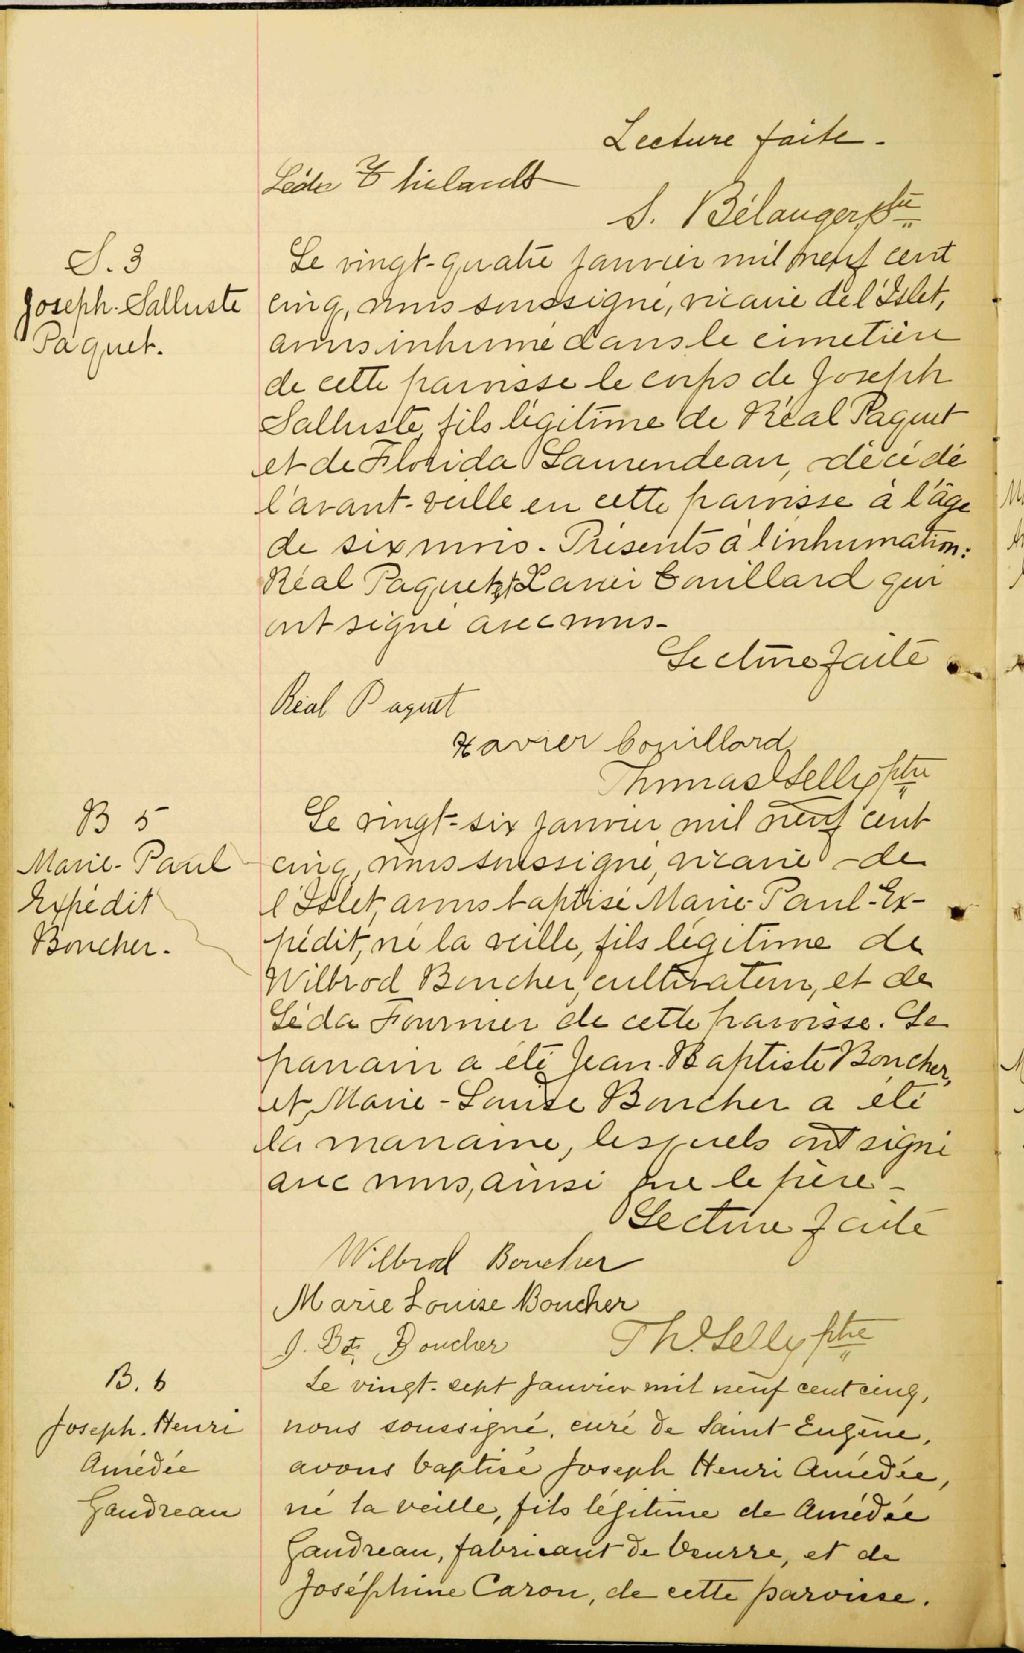 Lecture faite.
S. Bélanger, ptre
S. 3
Joseph-Salluste
Paquet.
Le vingt-quatre janvier mil neuf cent
cinq, nous soussigné, vicaire de l'Islet,
avons inhumé dans le cimetière
de cette paroisse le corps de Joseph
Salluste, fils légitime de Réal Paquet
et de Florida Laurendeau, décédé
l'avant-veille en cette paroisse à l'âge
de six mois. Présents à l'inhumation:
Réal Paquet, et Xavier Couillard qui
ont signé avec nous.
Lecture faite
Réal Paquet
Xavier Couillard
Thomas Lelly ptre
B 5
Marie-Paul
Expédit
Boucher.
Le vingt-six janvier mil neuf cent
cinq, nous soussigné, vicaire de
l'Islet, avons baptisé Marie-Paul-Ex-
pédit, né la veille, fils légitime de
Wilbrod Boucher, cultivateur, et de
Léda Fournier de cette paroisse. Le
parrain a été Jean-Baptiste Boucher,
et Marie-Louise Boucher a été
la marraine, lesquels ont signé
avec nous, ainsi que le père-
Lecture faite
Wilbrod Boucher
Marie Louise Boucher
J. Bte Boucher
Th. Lelly ptre
B. 6
Joseph. Henri
Amédée
Gaudreau
Le vingt-sept janvier mil neuf cent cinq,
nous soussigné, curé de Saint Eugène,
avons baptisé Joseph Henri Amédée,
né la veille, fils légitime de Amédée
Gaudreau, fabricant de beurre, et de
Joséphine Caron, de cette paroisse.